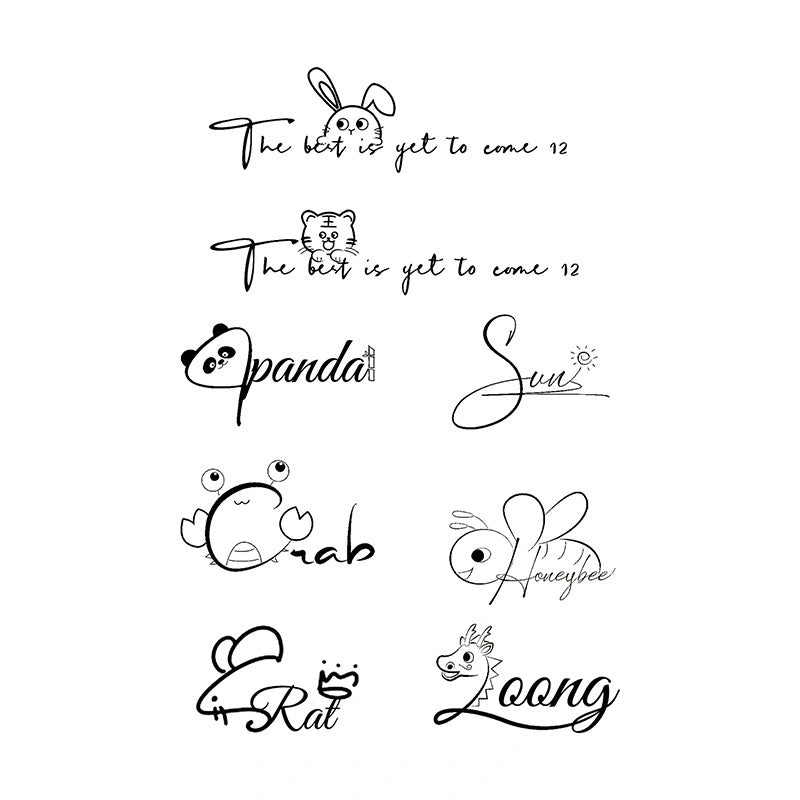 The best is yet to come 12
The best is yet to come 12
panda
Sun
Crab
Honeybee
Rat
Loong